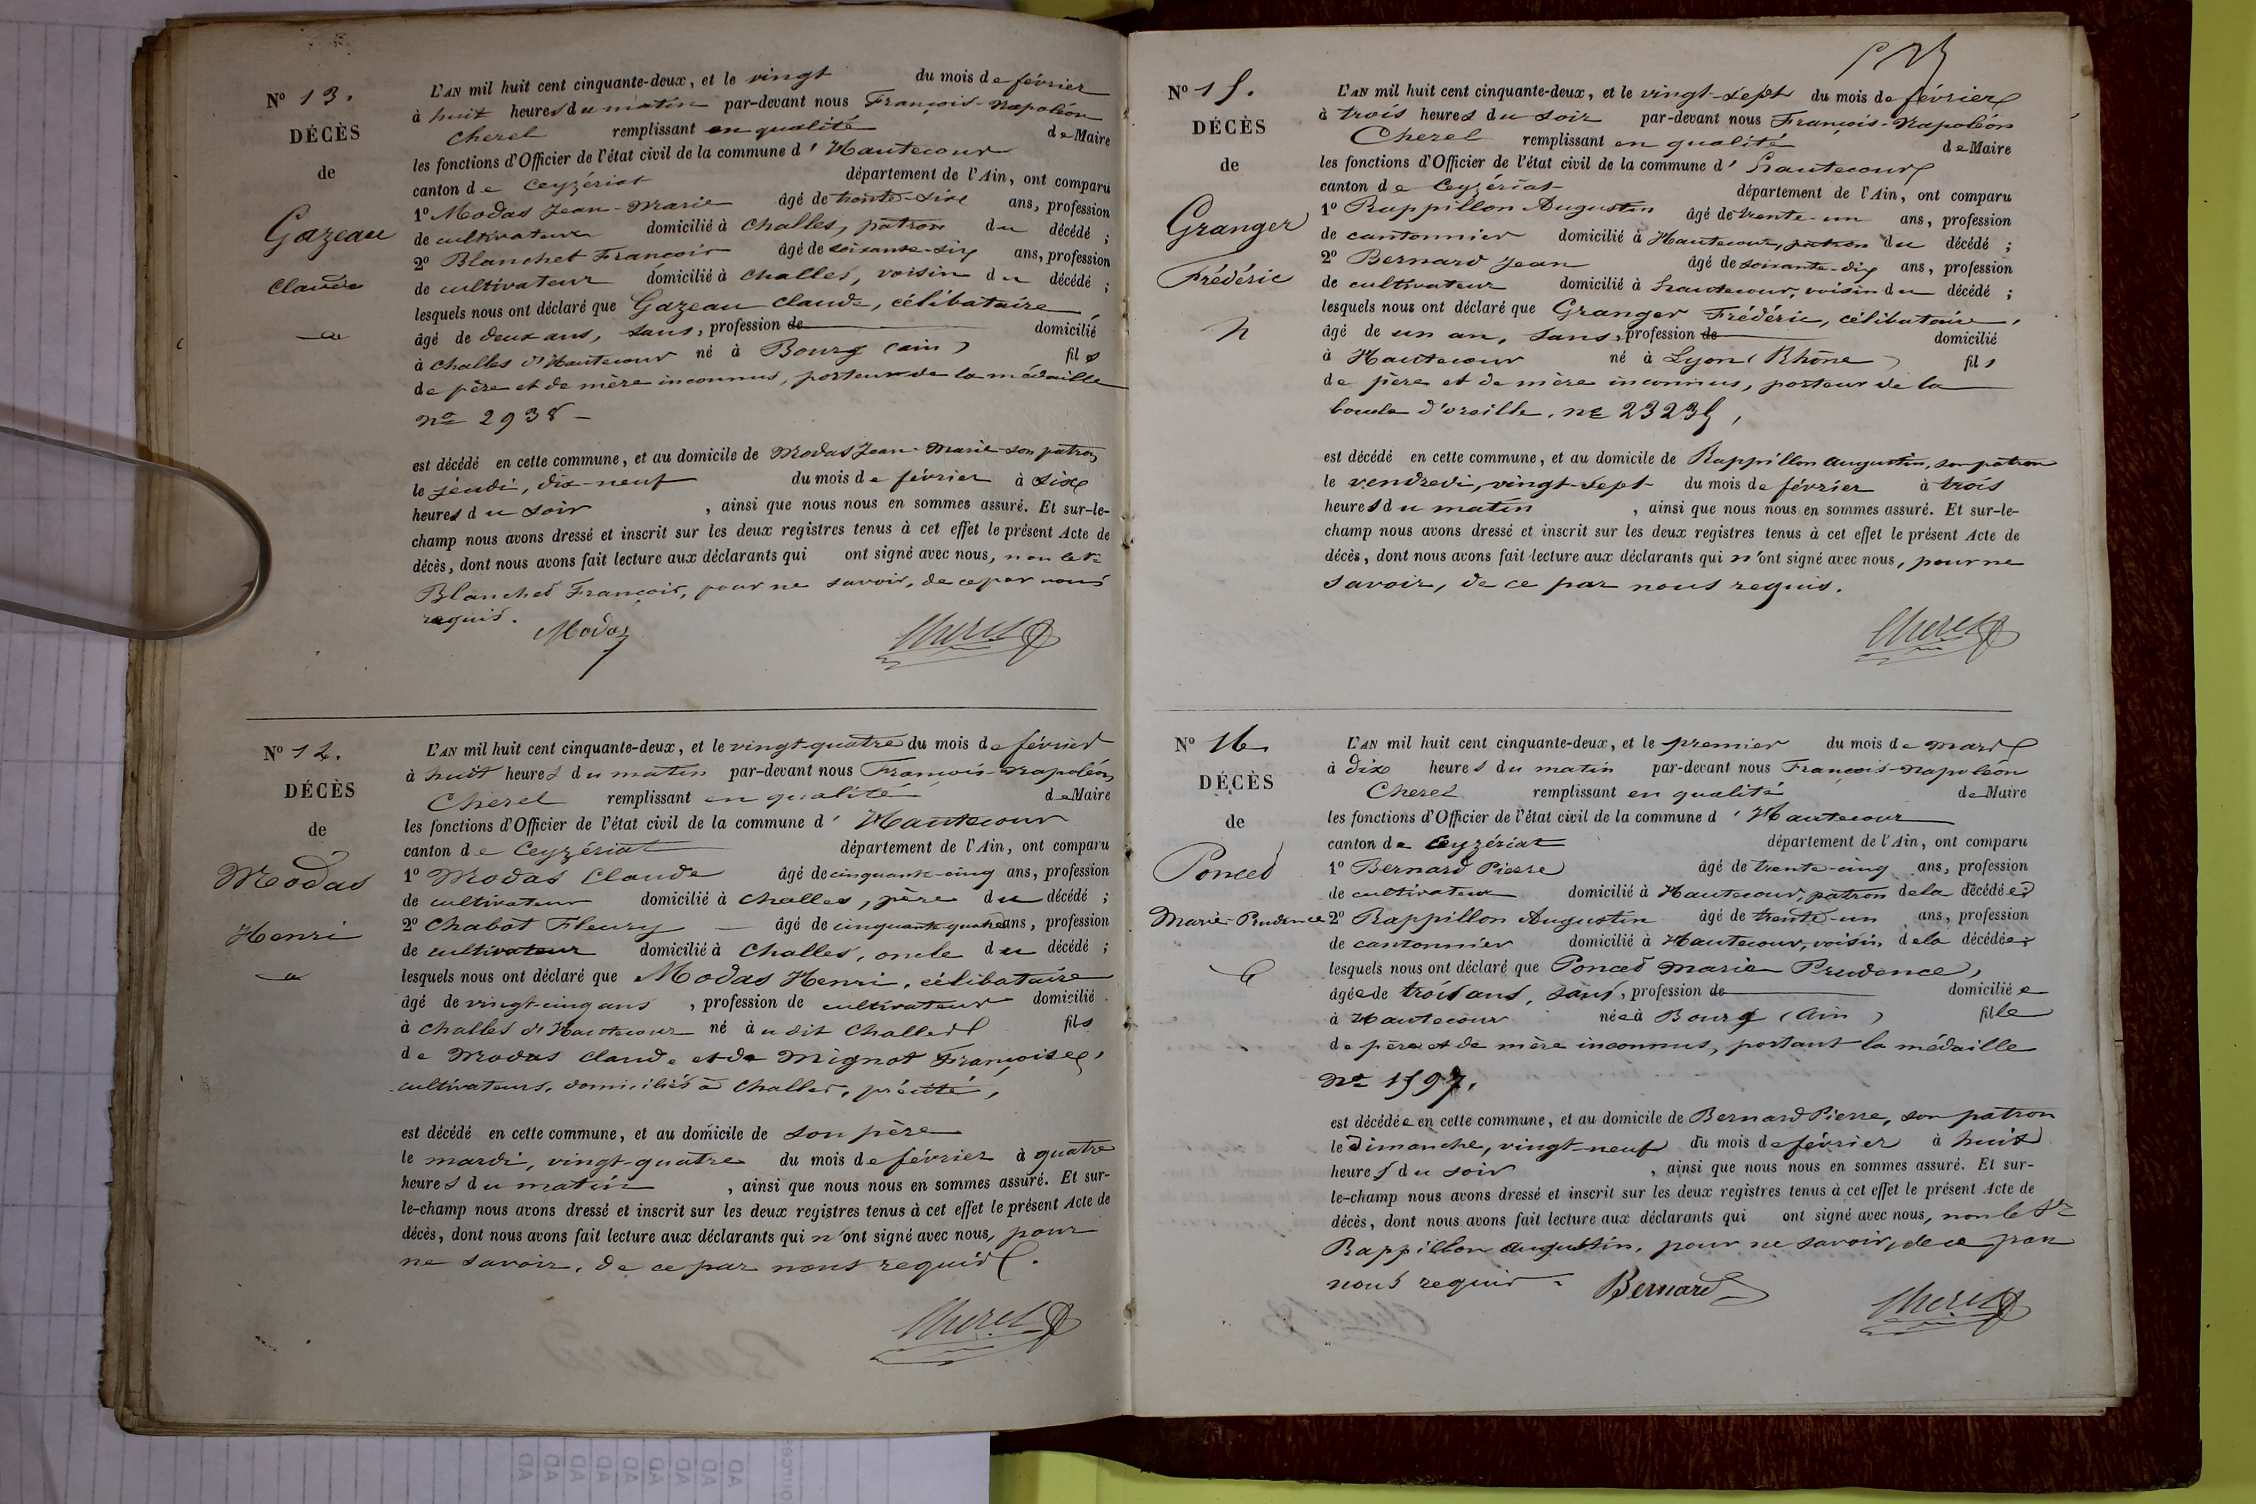 N° 13.
DÉCÈS
de
Gazeau
Claude
L'AN mil huit cent cinquante-deux, et le vingt du mois de février
à huit heures du matin par-devant nous François-Napoléon
Cherel remplissant en qualité de Maire
les fonctions d'Officier de l'état civil de la commune d'Hautecour
canton de Ceyzériat département de l'Ain, ont comparu
1° Modas Jean-Marie âgé de trente-six ans, profession
de cultivateur domicilié à Challes, patron du décédé ;
2° Blanchet François âgé de soixante-six ans, profession
de cultivateur domicilié à Challes, voisin du décédé ;
lesquels nous ont déclaré que Gazeau Claude, célibataire
âgé de deux ans, sans, profession de domicilié
à Challes d'Hautecour né à Bourg (ain) fils
de père et de mère inconnus, porteur de la médaille
n° 2938
est décédé en cette commune, et au domicile de Modas Jean-Marie son patron
le jeudi, dix-neuf du mois de février à six
heures du soir, ainsi que nous nous en sommes assuré. Et sur-le-
champ nous avons dressé et inscrit sur les deux registres tenus à cet effet le présent Acte de
décès, dont nous avons fait lecture aux déclarants qui ont signé avec nous, non le
Blanchet François, pour ne savoir, de ce par nous
requis.
Modas Cherel
N° 14.
DÉCÈS
de
Modas
Henri
L'AN mil huit cent cinquante-deux, et le vingt-quatre du mois de février
à huit heures du matin par-devant nous François-Napoléon
Cherel remplissant en qualité de Maire
les fonctions d'Officier de l'état civil de la commune d'Hautecour
canton de Ceyzériat département de l'Ain, ont comparu
1° Modas Claude âgé de cinquante-cinq ans, profession
de cultivateur domicilié à Challes, père du décédé ;
2° Chabot Fleury âgé de cinquante-quatre ans, profession
de cultivateur domicilié à Challes, oncle du décédé ;
lesquels nous ont déclaré que Modas Henri, célibataire
âgé de vingt-cinq ans, profession de cultivateur domicilié
à Challes d'Hautecour né à udit Challes fils
de Modas Claude et de Mignot Françoise,
cultivateurs, domiciliés à Challes, précité,
est décédé en cette commune, et au domicile de son père
le mardi, vingt-quatre du mois de février à quatre
heures du matin, ainsi que nous nous en sommes assuré. Et sur-
le-champ nous avons dressé et inscrit sur les deux registres tenus à cet effet le présent Acte de
décès, dont nous avons fait lecture aux déclarants qui n'ont signé avec nous, pour
ne savoir, de ce par nous requis.
Cherel
N° 15.
DÉCÈS
de
Granger
Frédéric
L'AN mil huit cent cinquante-deux, et le vingt-sept du mois de février
à trois heures du soir par-devant nous François-Napoléon
Cherel remplissant en qualité de Maire
les fonctions d'Officier de l'état civil de la commune d'Hautecour
canton de Ceyzériat département de l'Ain, ont comparu
1° Rappillon Augustin âgé de trente-un ans, profession
de cantonnier domicilié à Hautecour, patron du décédé ;
2° Bernard Jean âgé de soixante-dix ans, profession
de cultivateur domicilié à Hautecour, voisin du décédé ;
lesquels nous ont déclaré que Granger Frédéric, célibataire,
âgé de un an, sans, profession de domicilié
à Hautecour né à Lyon (Rhône) fils
de père et de mère inconnus, porteur de la
boucle d'oreille, n° 23235,
est décédé en cette commune, et au domicile de Rappillon Augustin, son patron
le vendredi, vingt-sept du mois de février à trois
heures du matin, ainsi que nous nous en sommes assuré. Et sur-le-
champ nous avons dressé et inscrit sur les deux registres tenus à cet effet le présent Acte de
décès, dont nous avons fait lecture aux déclarants qui n'ont signé avec nous, pour ne
savoir, de ce par nous requis.
Cherel
N° 16.
DÉCÈS
de
Poncet
Marie-Prudence
L'AN mil huit cent cinquante-deux, et le premier du mois de mars
à dix heures du matin par-devant nous François-Napoléon
Cherel remplissant en qualité de Maire
les fonctions d'Officier de l'état civil de la commune d'Hautecour
canton de Ceyzériat département de l'Ain, ont comparu
1° Bernard Pierre âgé de trente-cinq ans, profession
de cultivateur domicilié à Hautecour, patron de la décédée ;
2° Rappillon Augustin âgé de trente-un ans, profession
de cantonnier domicilié à Hautecour, voisin de la décédée ;
lesquels nous ont déclaré que Poncet Marie Prudence,
âgée de trois ans, sans, profession de domiciliée
à Hautecour née à Bourg (Ain) fille
de père et de mère inconnus, portant la médaille
n° 1597.
est décédée en cette commune, et au domicile de Bernard Pierre, son patron
le dimanche, vingt-neuf du mois de février à huit
heures du soir, ainsi que nous nous en sommes assuré. Et sur-
le-champ nous avons dressé et inscrit sur les deux registres tenus à cet effet le présent Acte de
décès, dont nous avons fait lecture aux déclarants qui ont signé avec nous, non le Sr
Rappillon Augustin, pour ne savoir, de ce par
nous requis.
Bernard Cherel